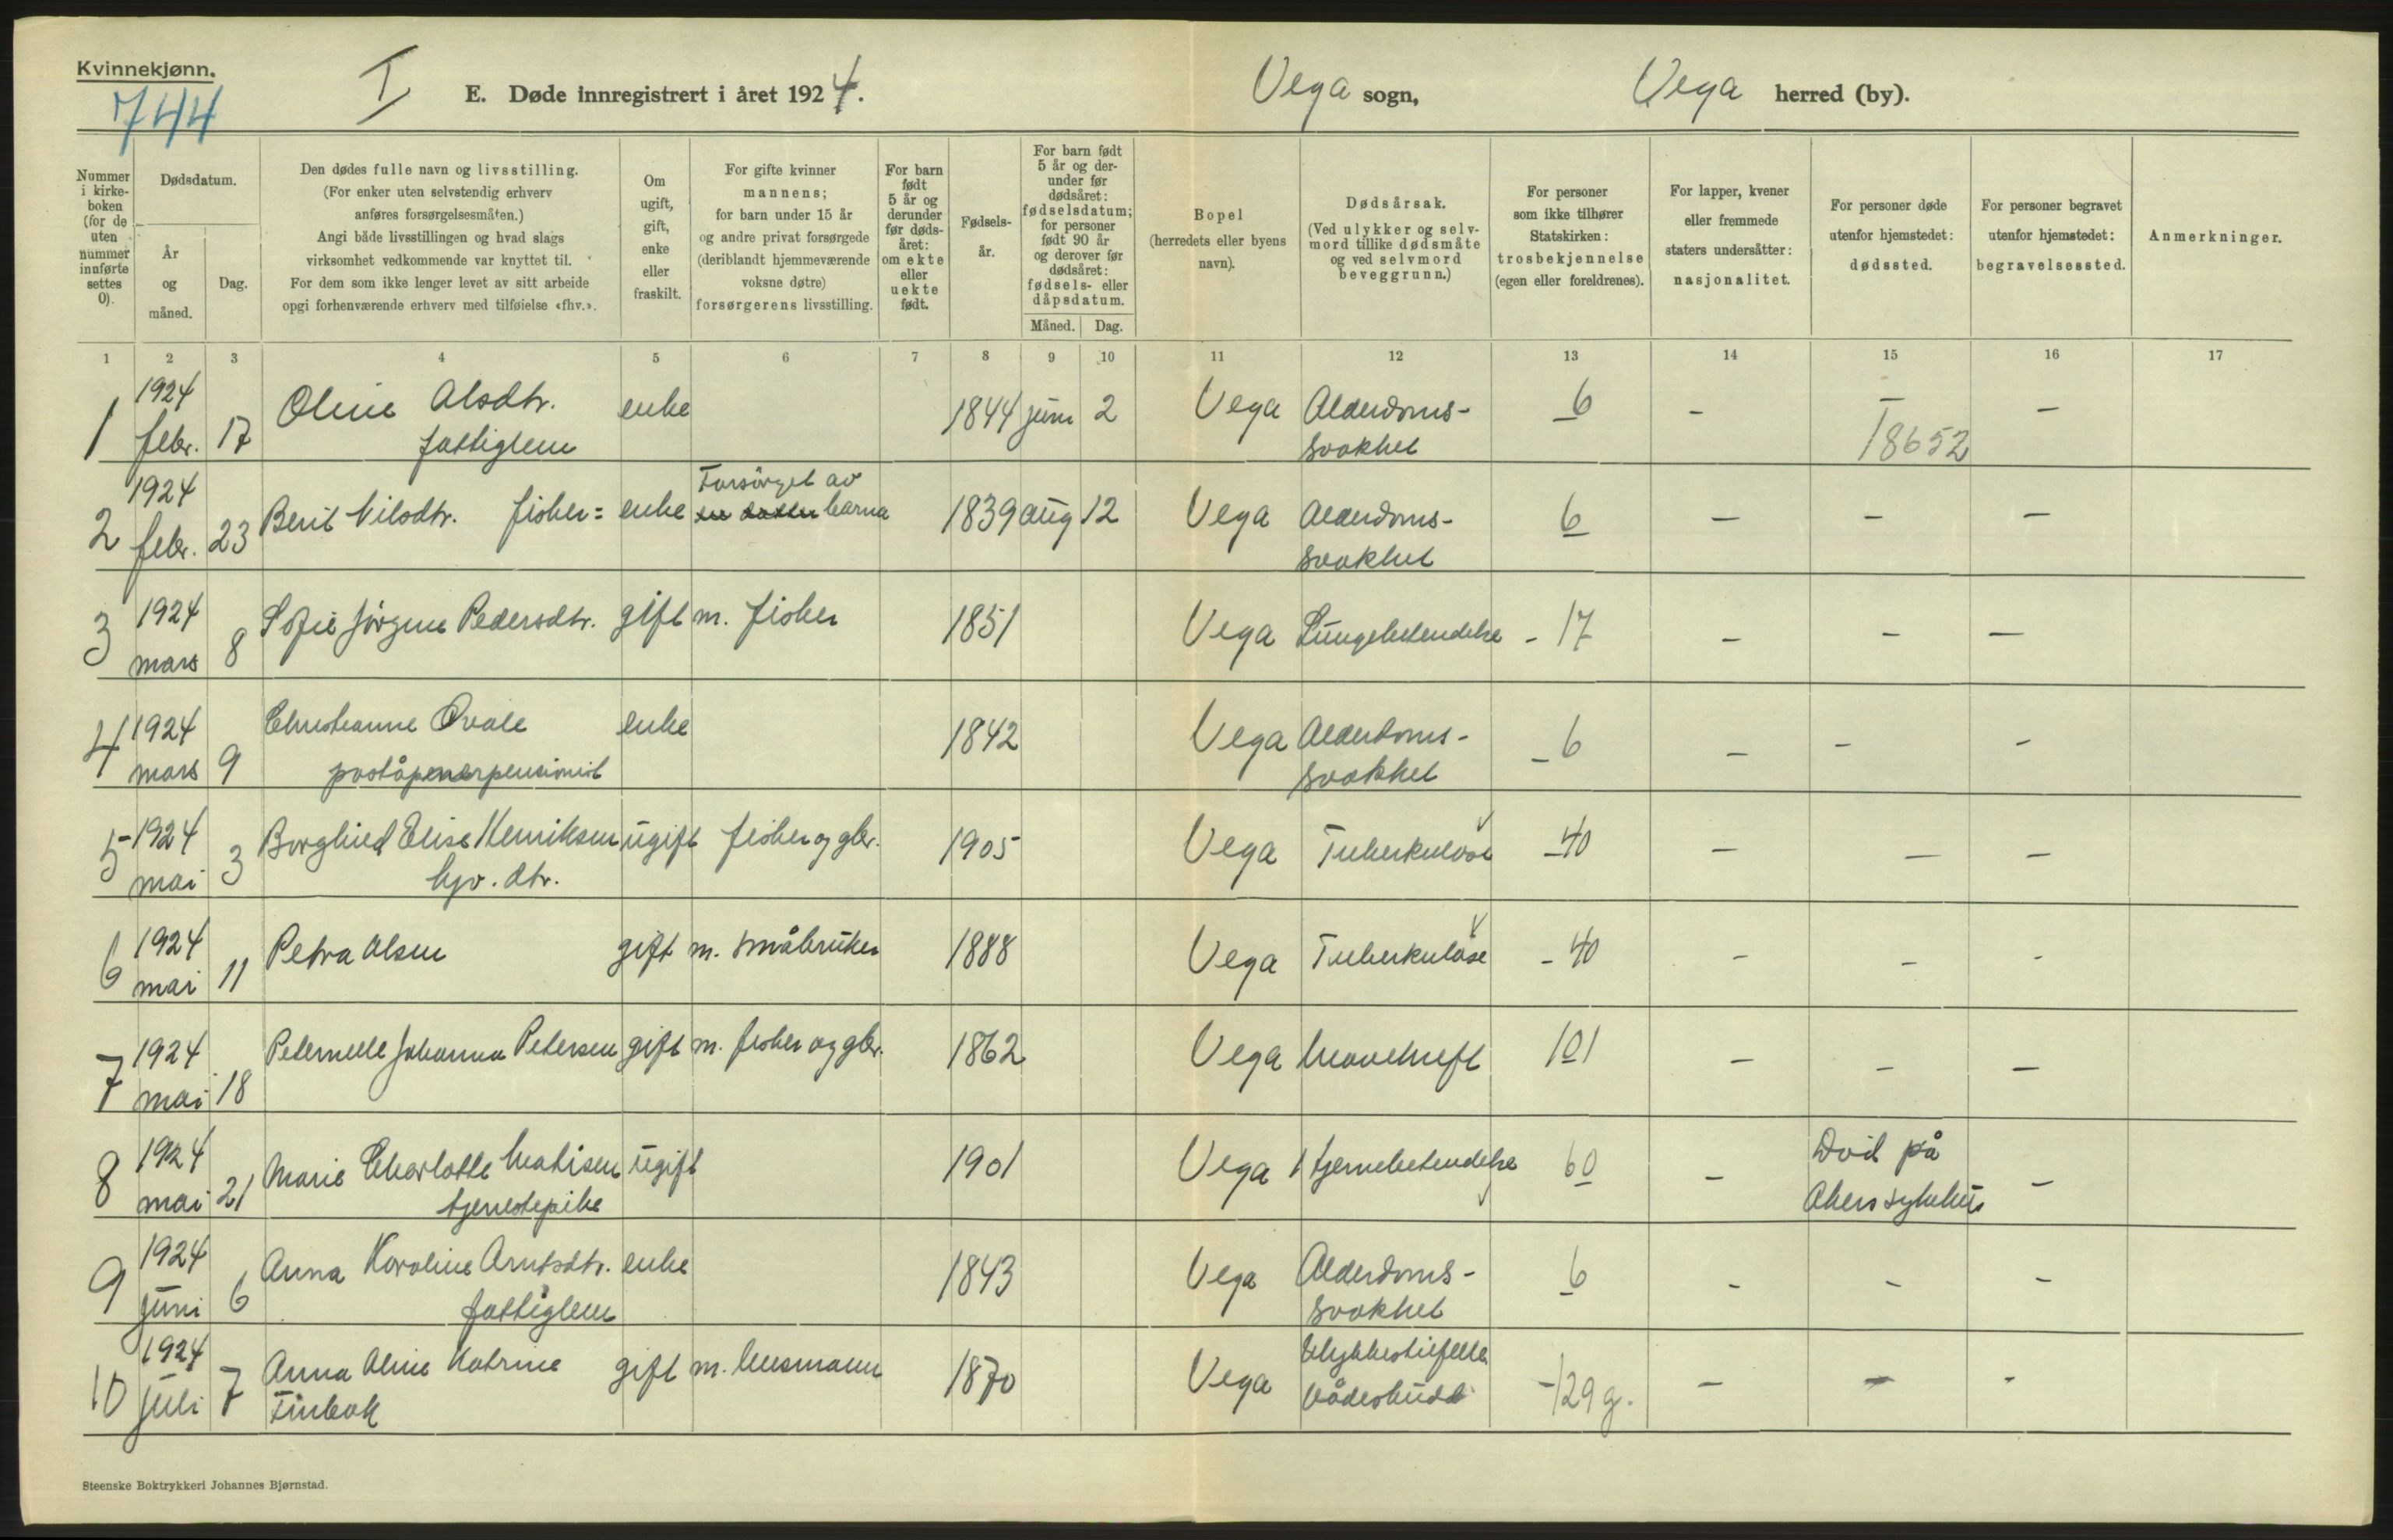 Kvinnekjønn.
744
I
E. Døde innregistrert i året 1924.
Vega sogn,
Vega herred (by).
Nummer i kirke-boken (for de uten nummer innførte settes 0).
Dødsdatum.
År og måned.
Dag.
Den dødes fulle navn og livsstilling.
(For enker uten selvstendig erhverv
anføres forsørgelsesmåten.)
Angi både livsstillingen og hvad slags
virksomhet vedkommende var knyttet til.
For dem som ikke lenger levet av sitt arbeide
opgi forhenværende erhverv med tilføielse «fhv.».
Om ugift, gift, enke eller fraskilt.
For gifte kvinner
mannens;
for barn under 15 år
og andre privat forsørgede
(deriblandt hjemmeværende
voksne døtre)
forsørgerens livsstilling.
For barn født 5 år og derunder før døds-året: om ekte eller uekte født.
Fødsels-år.
For barn født 5 år og der-under før dødsåret: fødselsdatum; for personer født 90 år og derover før dødsåret: fødsels- eller dåpsdatum.
Måned. Dag.
Bopel
(herredets eller byens navn).
Dødsårsak.
(Ved ulykker og selv-mord tillike dødsmåte og ved selvmord beveggrunn.)
For personer som ikke tilhører Statskirken: trosbekjennelse (egen eller foreldrenes).
For lapper, kvener eller fremmede staters undersåtter: nasjonalitet.
For personer døde utenfor hjemstedet: dødssted.
For personer begravet utenfor hjemstedet: begravelsessted.
Anmerkninger.
1 2 3 4 5 6 7 8 9 10 11 12 13 14 15 16 17
1 1924 febr. 17 Oline Olsdtr. enke 1844 juni 2 Vega Alderdoms- 6 - - -
fattiglem svakhet 18652
2 1924 febr. 23 Berit Nilsdtr. fisker= enke Forsörget av barna 1839 aug 12 Vega Alderdoms- 6 - - -
svakhet
3 1924 mars 8 Sofie Jörgine Pedersdtr. gift m. fisker 1851 Vega Lungebetendelse - 17 - - -
4 1924 mars 9 Christianne Qvale enke 1842 Vega Alderdoms- - 6 - - -
poståpnerpensionist svakhet
5 1924 mai 3 Borghild Elise Henriksen ugift fisker og gbr. 1905 Vega Tuberkulose - 40 - - -
hjv. dtr.
6 1924 mai 11 Petra Olsen gift m. småbruker 1888 Vega Tuberkulose - 40 - - -
7 1924 mai 18 Peternelle Johanna Petersen gift m. fisker og gbr. 1862 Vega Mavekreft 101 - - -
8 1924 mai 21 Marie Charlotte Matisen ugift 1901 Vega Hjernebetendelse 60 - Död på -
tjenestepike Akers sykehus
9 1924 juni 6 Anna Karoline Arntsdtr. enke 1843 Vega Alderdoms- 6 - - -
fattiglem svakhet
10 1924 juli 7 Anna Oline Katrine gift m. husmann 1870 Vega Ulykkestilfelle - 129 g. - - -
Finbak Vådeskudd
Steenske Boktrykkeri Johannes Bjørnstad.